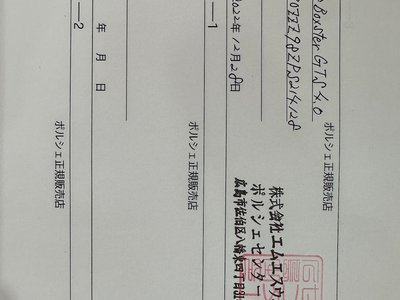 Boxster GTS 4.0
0ZZZ98ZPS214128
ポルシェ正規販売店
株式会社エムエスウ
ポルシェセンター
2022年12月28日
広島市佐伯区八幡東四丁目
1
ポルシェ正規販売店
年 月 日
2
ポルシェ正規販売店